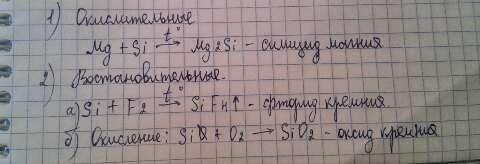 1) Окислительные
Mg + Si —t°→ Mg2Si - силицид магния
2) Востановительные.
а) Si + F2 —t°→ SiF4↑ - фторид кремния
б) Окисление: Si + O2 → SiO2 - оксид кремния